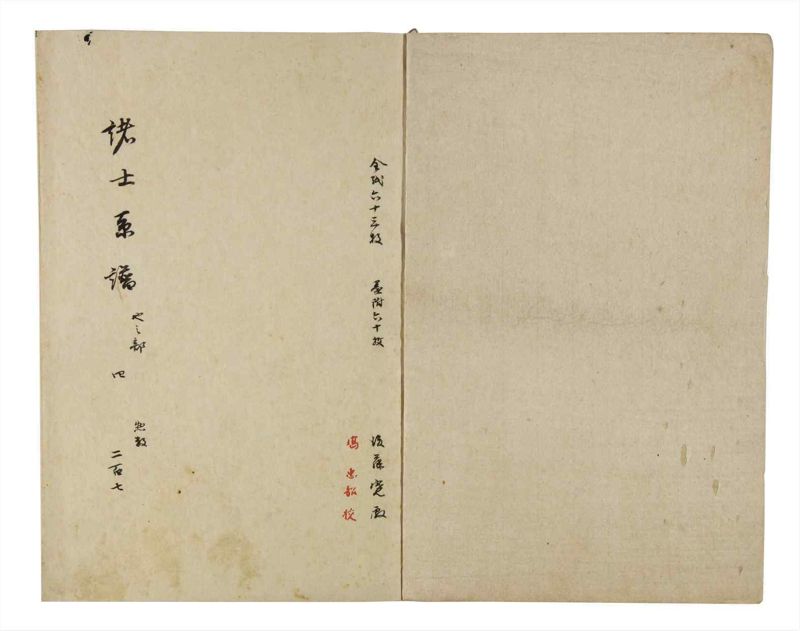 全紙六十三枚 墨附六十枚
後藤
塙忠韶校
諸士系譜 や之部 四 惣数 二百七